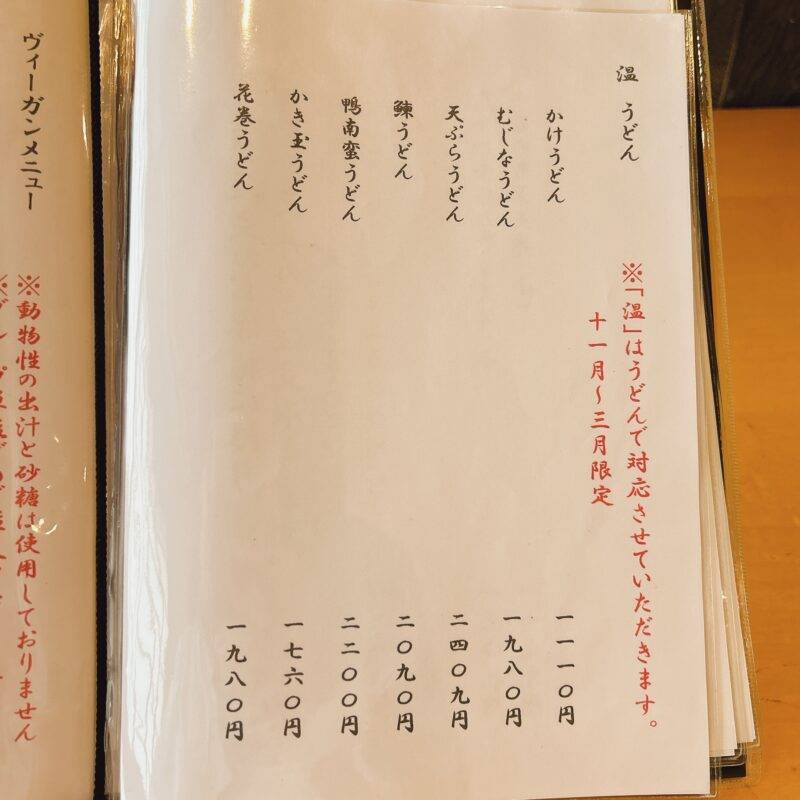 温 うどん
※「温」はうどんで対応させていただきます。
十一月～三月限定
かけうどん 一一一〇円
むじなうどん 一九八〇円
天ぷらうどん 二四〇九円
鰊うどん 二〇九〇円
鴨南蛮うどん 二二〇〇円
かき玉うどん 一七六〇円
花巻うどん 一九八〇円
ヴィーガンメニュー
※動物性の出汁と砂糖は使用しておりません